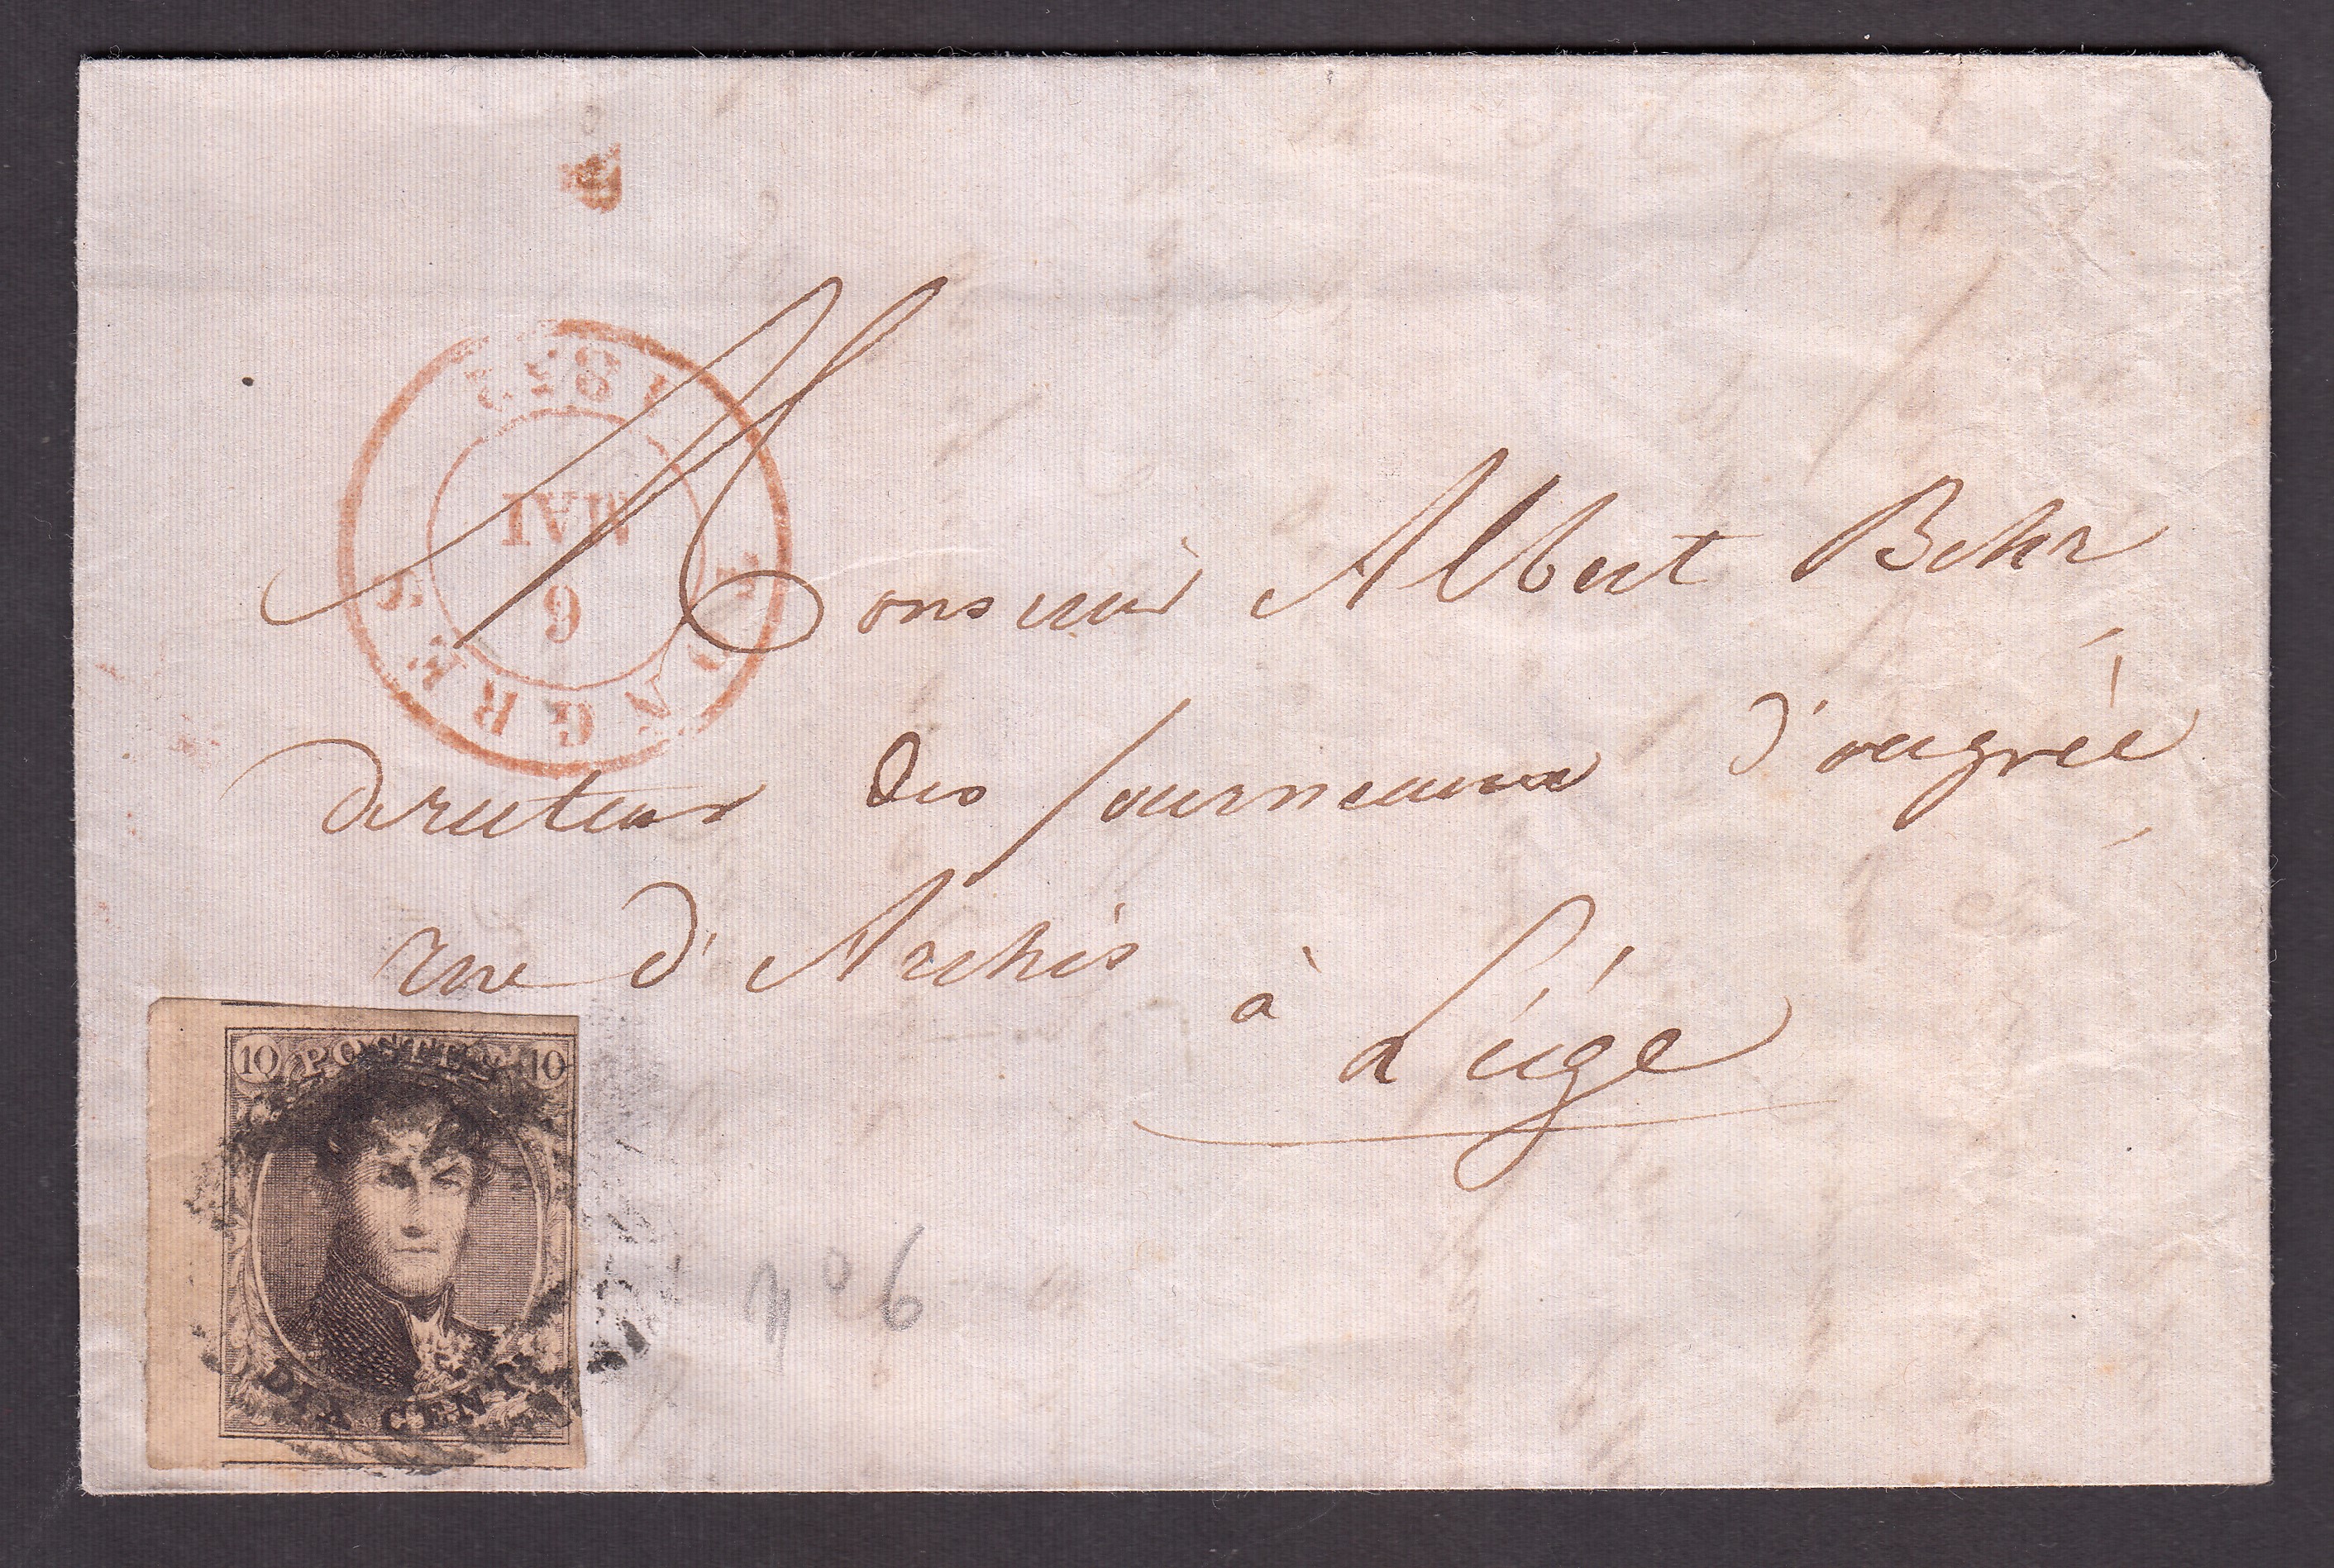 1852
6
MAI
Monsieur Albert Behr
directeur des fourneaux d'ougrée
rue d'Archis
à Liége
10 POSTES 10
DIX CENTS